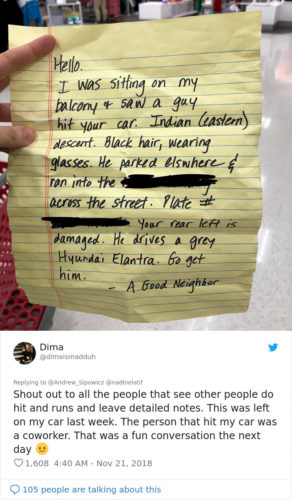 Hello.
I was sitting on my
balcony & saw a guy
hit your car. Indian (eastern)
descent. Black hair, wearing
glasses. He parked elswhere &
ran into the
across the street. Plate #
Your rear left is
damaged. He drives a grey
Hyundai Elantra. Go get
him.
- A Good Neighbor
Dima
@dimaismadduh
Replying to @Andrew_Sipowicz @nadinelatif
Shout out to all the people that see other people do
hit and runs and leave detailed notes. This was left
on my car last week. The person that hit my car was
a coworker. That was a fun conversation the next
day 😐
1,608 4:40 AM - Nov 21, 2018
105 people are talking about this